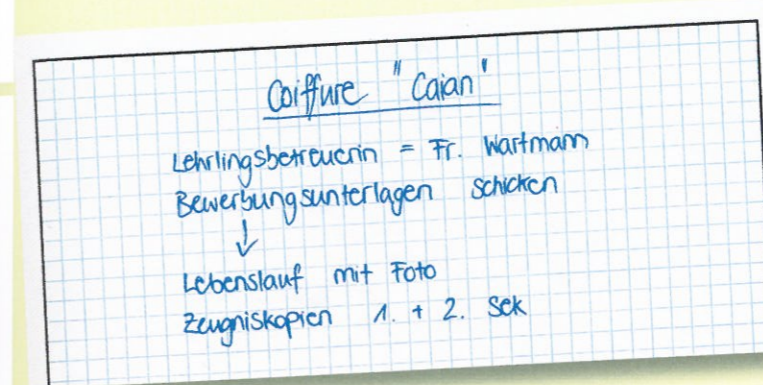 Coiffure "Caian"
Lehrlingsbetreuerin = Fr. Wartmann
Bewerbungsunterlagen schicken
↓
Lebenslauf mit Foto
Zeugniskopien 1. + 2. Sek